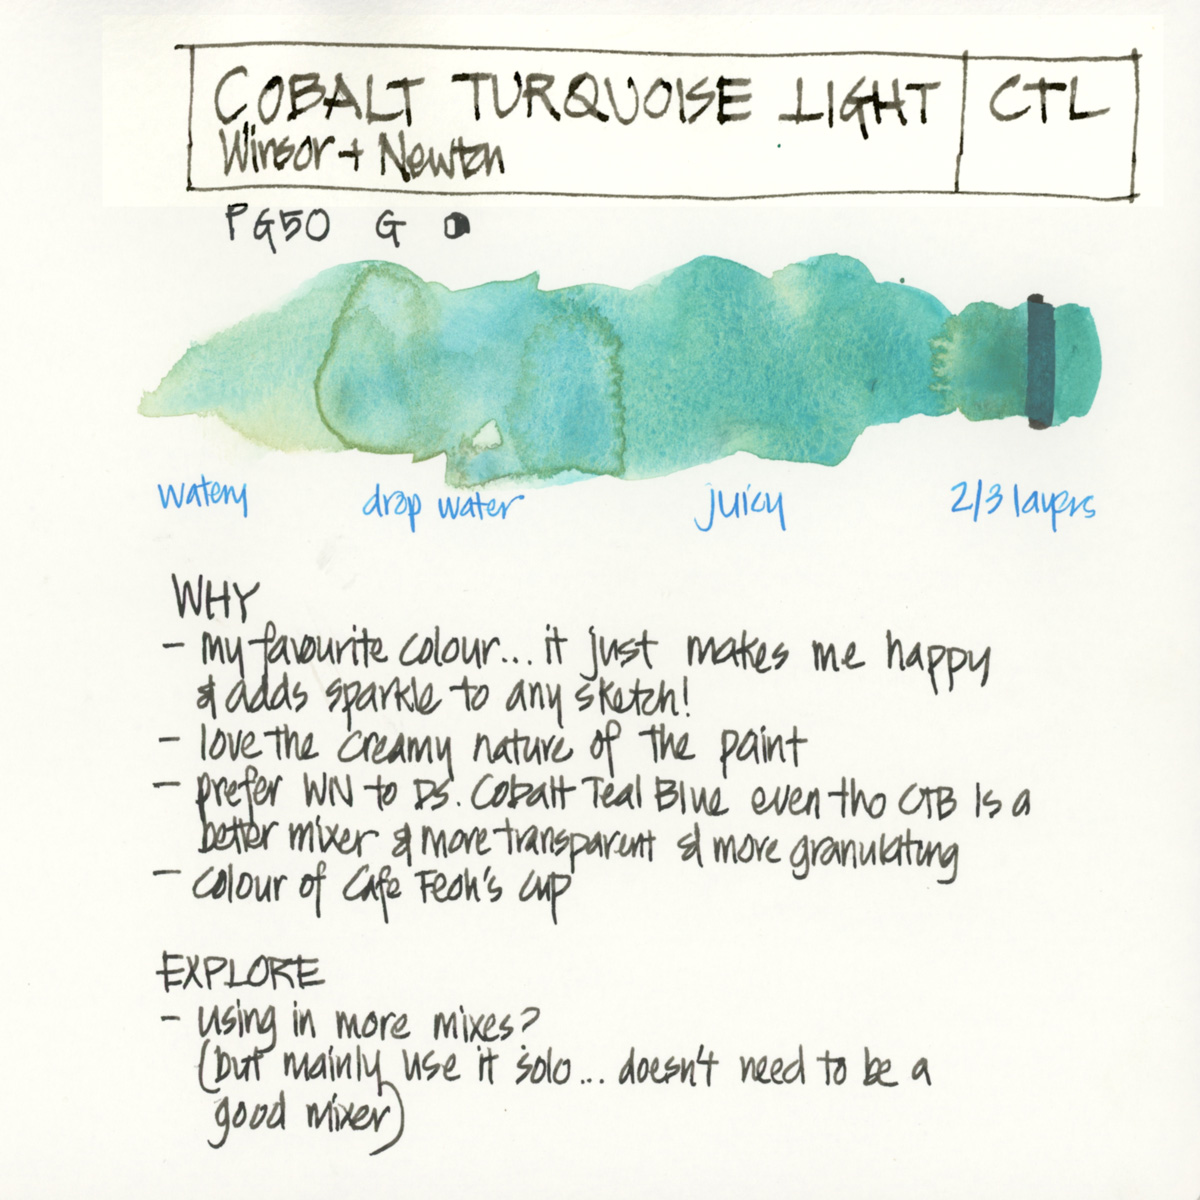 COBALT TURQUOISE LIGHT CTL
Winsor + Newton
PG50 G
watery drop water juicy 2/3 layers
WHY
- my favourite colour... it just makes me happy
& adds sparkle to any sketch!
- love the creamy nature of the paint
- prefer WN to DS. Cobalt Teal Blue even tho CTB is a
better mixer & more transparent & more granulating
- colour of Cafe Feoh's cup
EXPLORE
- using in more mixes?
(but mainly use it solo... doesn't need to be a
good mixer)